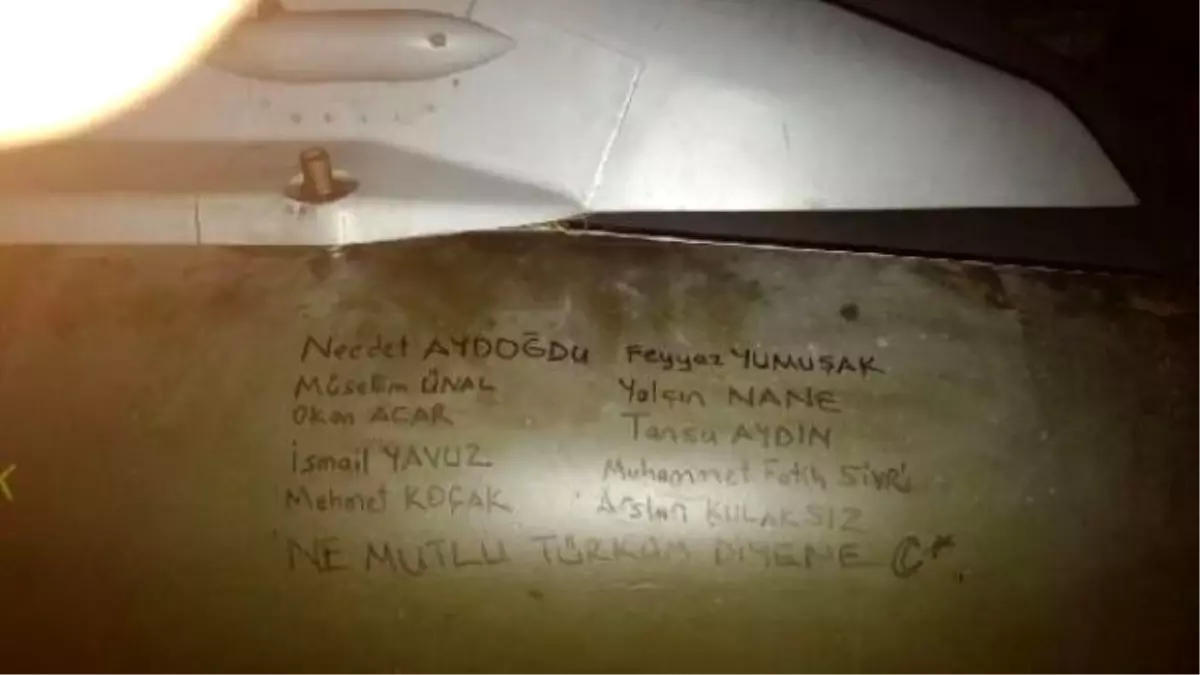 Necdet AYDOĞDU Feyyaz YUMUŞAK
Müselim ÜNAL Yalçın NANE
Okan ACAR Tansu AYDIN
İsmail YAVUZ Muhammet Fatih SİVRİ
Mehmet KOÇAK Arslan KULAKSIZ
NE MUTLU TÜRKÜM DİYENE C*